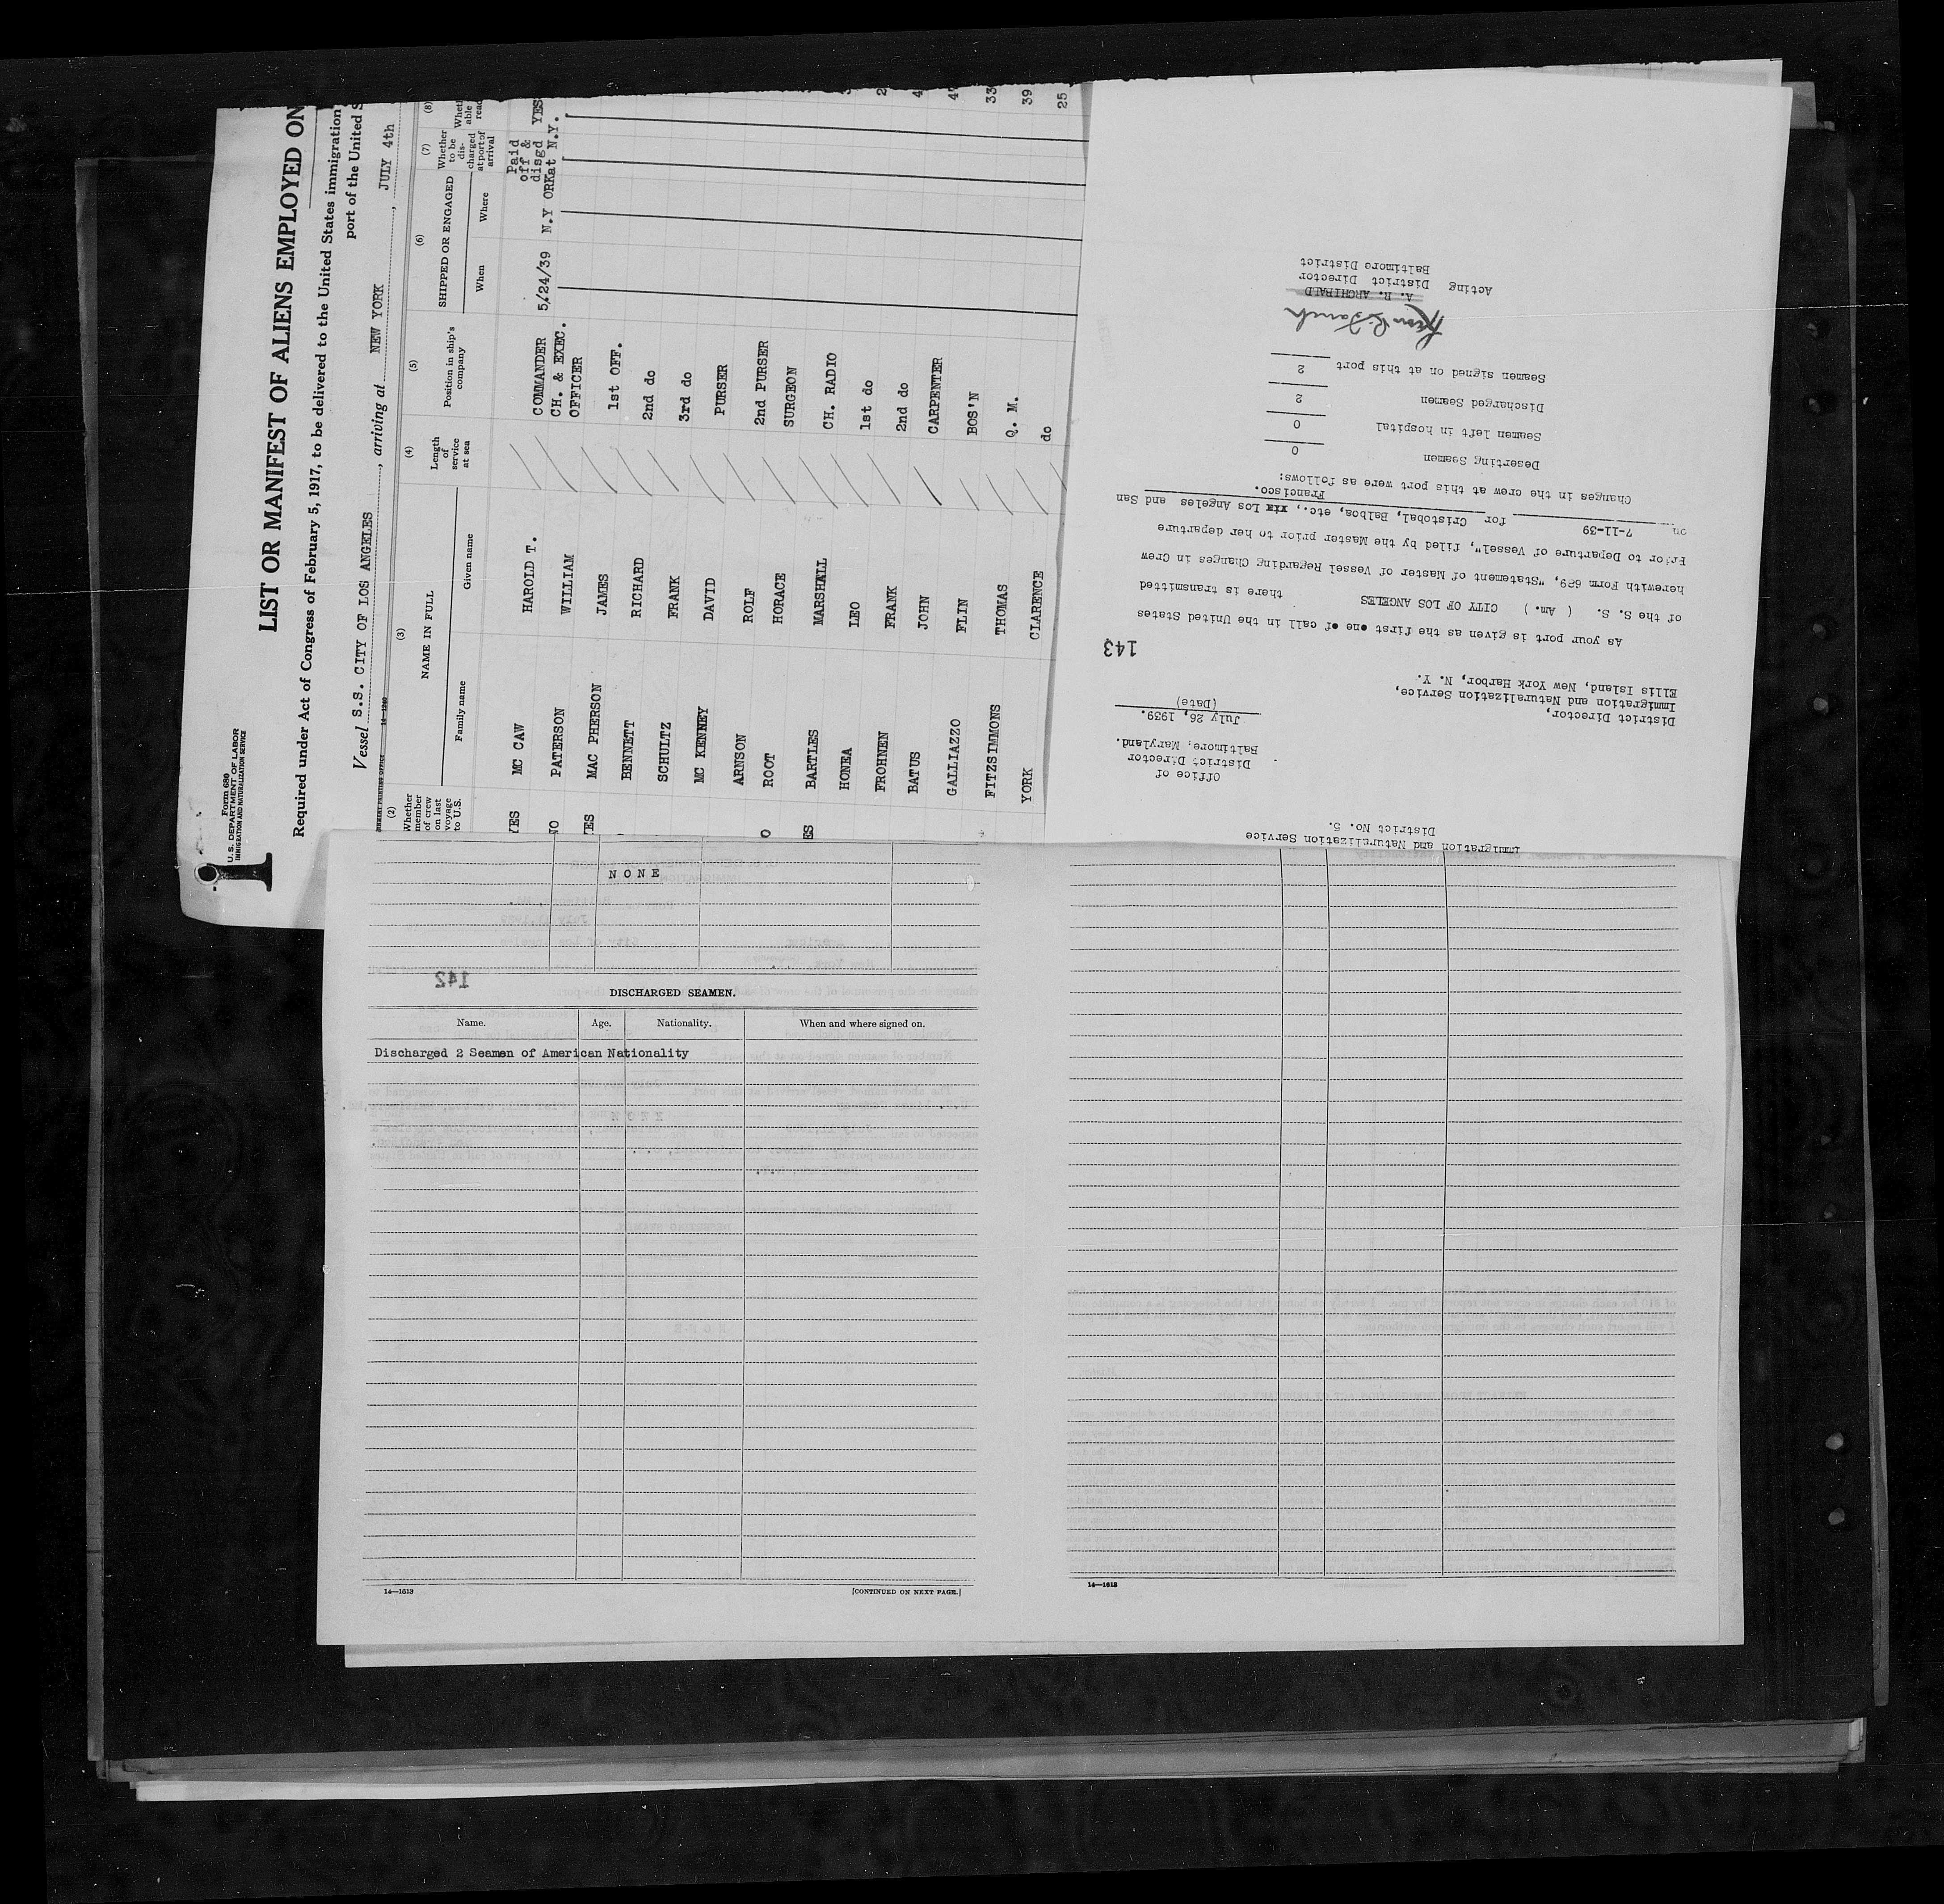 Form 680
U. S. DEPARTMENT OF LABOR
IMMIGRATION AND NATURALIZATION SERVICE
LIST OR MANIFEST OF ALIENS EMPLOYED ON
Required under Act of Congress of February 5, 1917, to be delivered to the United States immigration
port of the United S
Vessel S.S. CITY OF LOS ANGELES, arriving at NEW YORK, JULY 4th
14—1240
(2) (3) (4) (5) (6) (7) (8)
Whether member of crew on last voyage to U.S.
NAME IN FULL
Family name Given name
Length of service at sea
Position in ship's company
SHIPPED OR ENGAGED
When Where
Whether to be dis-charged at port of arrival
YES MC CAW HAROLD T. COMMANDER 5/24/39 N.Y ORK Paid off & disgd at N.Y. YES
NO PATERSON WILLIAM CH. & EXEC. OFFICER
YES MAC PHERSON JAMES 1st OFF.
BENNETT RICHARD 2nd do
SCHULTZ FRANK 3rd do
MC KENNEY DAVID PURSER
ARNSON ROLF 2nd PURSER
ROOT HORACE SURGEON
BARTLES MARSHALL CH. RADIO
HONEA LEO 1st do
FROHNEN FRANK 2nd do
BATUS JOHN CARPENTER
GALLIAZZO FLIN BOS'N
FITZSIMMONS THOMAS Q. M. 39
YORK CLARENCE do 25
Immigration and Naturalization Service
District No. 5.
Office of
District Director
Baltimore, Maryland.
July 26, 1939.
(Date)
District Director,
Immigration and Naturalization Service,
Ellis Island, New York Harbor, N. Y.
143
As your port is given as the first one of call in the United States
of the S. S. ( Am. ) CITY OF LOS ANGELES there is transmitted
herewith Form 689, "Statement of Master of Vessel Regarding Changes in Crew
Prior to Departure of Vessel", filed by the Master prior to her departure
on 7-11-39 for Cristobal, Balboa, etc., via Los Angeles and San
Francisco.
Changes in the crew at this port were as follows:
Deserting Seamen 0
Seamen left in hospital 0
Discharged Seamen 2
Seamen signed on at this port 2
A. R. ARCHIBALD
Acting District Director
Baltimore District
NONE
142
DISCHARGED SEAMEN.
Name. Age. Nationality. When and where signed on.
Discharged 2 Seamen of American Nationality
14—1613
[CONTINUED ON NEXT PAGE.]
14—1613